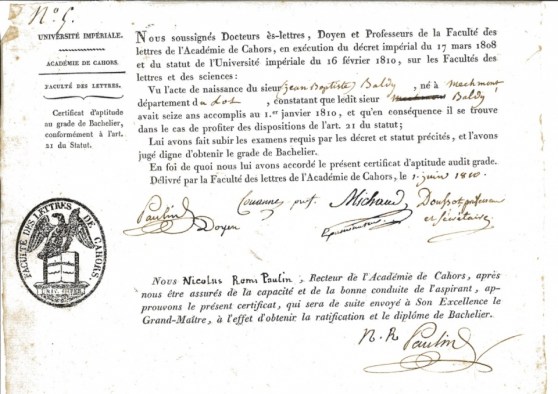 N.º 5.
UNIVERSITÉ IMPÉRIALE.
ACADÉMIE DE CAHORS.
FACULTÉ DES LETTRES.
Certificat d'aptitude
au grade de Bachelier,
conformément à l'art.
21 du Statut.
Nous soussignés Docteurs ès-lettres, Doyen et Professeurs de la Faculté des
lettres de l'Académie de Cahors, en exécution du décret impérial du 17 mars 1808
et du statut de l'Université impériale du 16 février 1810, sur les Facultés des
lettres et des sciences:
Vu l'acte de naissance du sieur Jean Baptiste Baldy, né à
département du Lot, constatant que ledit sieur Baldy
avait seize ans accomplis au 1.er janvier 1810, et qu'en conséquence il se trouve
dans le cas de profiter des dispositions de l'art. 21 du statut;
Lui avons fait subir les examens requis par les décret et statut précités, et l'avons
jugé digne d'obtenir le grade de Bachelier.
En foi de quoi nous lui avons accordé le présent certificat d'aptitude audit grade.
Délivré par la Faculté des lettres de l'Académie de Cahors, le 1. juin 1810.
Paulin
Doyen
prof.
Michaud
professeur
et Secrétaire
FACULTÉ DES LETTRES DE CAHORS.
Nous Nicolas Remi Paulin, Recteur de l'Académie de Cahors, après
nous être assurés de la capacité et de la bonne conduite de l'aspirant, ap-
prouvons le présent certificat, qui sera de suite envoyé à Son Excellence le
Grand-Maître, à l'effet d'obtenir la ratification et le diplôme de Bachelier.
N. R
Paulin